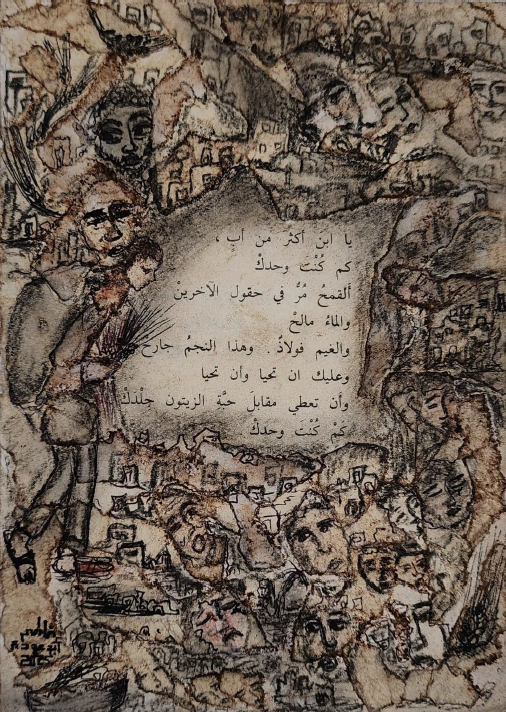 يا ابنَ أكثرَ من أبٍ ،
كم كُنْتَ وحدكْ
ألقمحُ مُرٌّ في حقول الآخرينْ
والماءُ مالحْ
والغيم فولاذٌ . وهذا النجمُ جارح
وعليك ان تحيا وأن تحيا
وأن تعطي مقابلَ حبَّةِ الزيتون جِلْدَكْ
كَمْ كُنْتَ وحدكْ